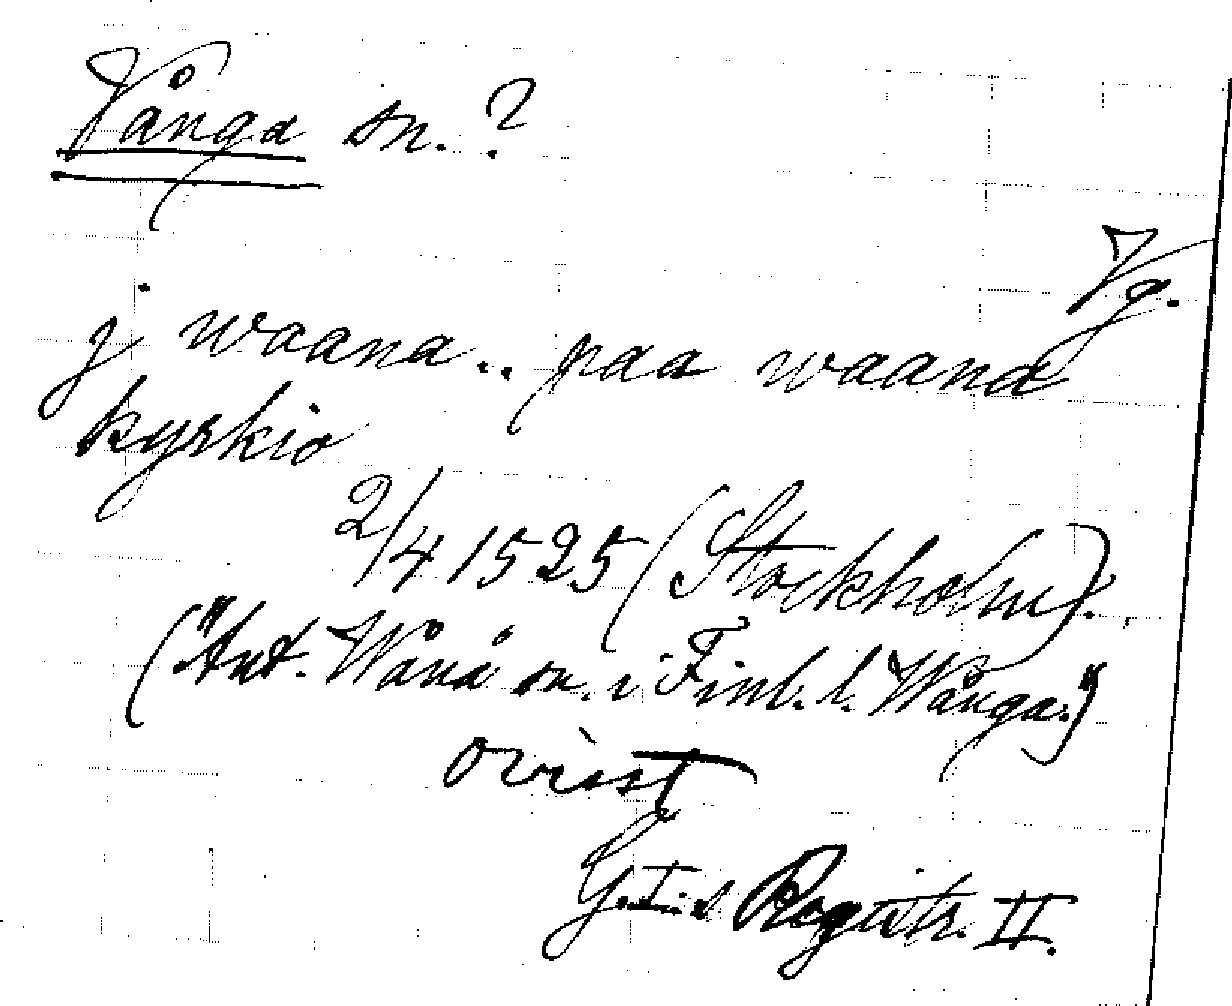 Vånga sn. ?
Vg.
j waana.. paa waana
kyrkio
2/4 1525 (Stockholm).
("Ant. Wånå sn. i Finl. l. Wånga.")
ovisst
G. I:s Registr. II.